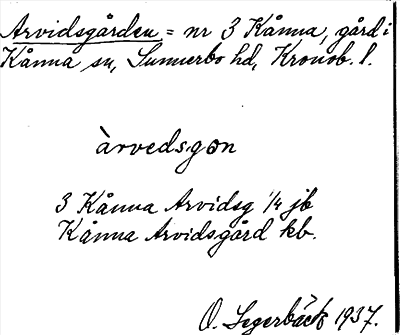 Arvidsgården = nr 3 Kånna, gård i
Kånna sn, Sunnerbo hd, Kronob. l.
àrvedsgon
3 Kånna Arvidsg 1/4 jb
Kånna Arvidsgård kb.
O. Segerbäck 1937.